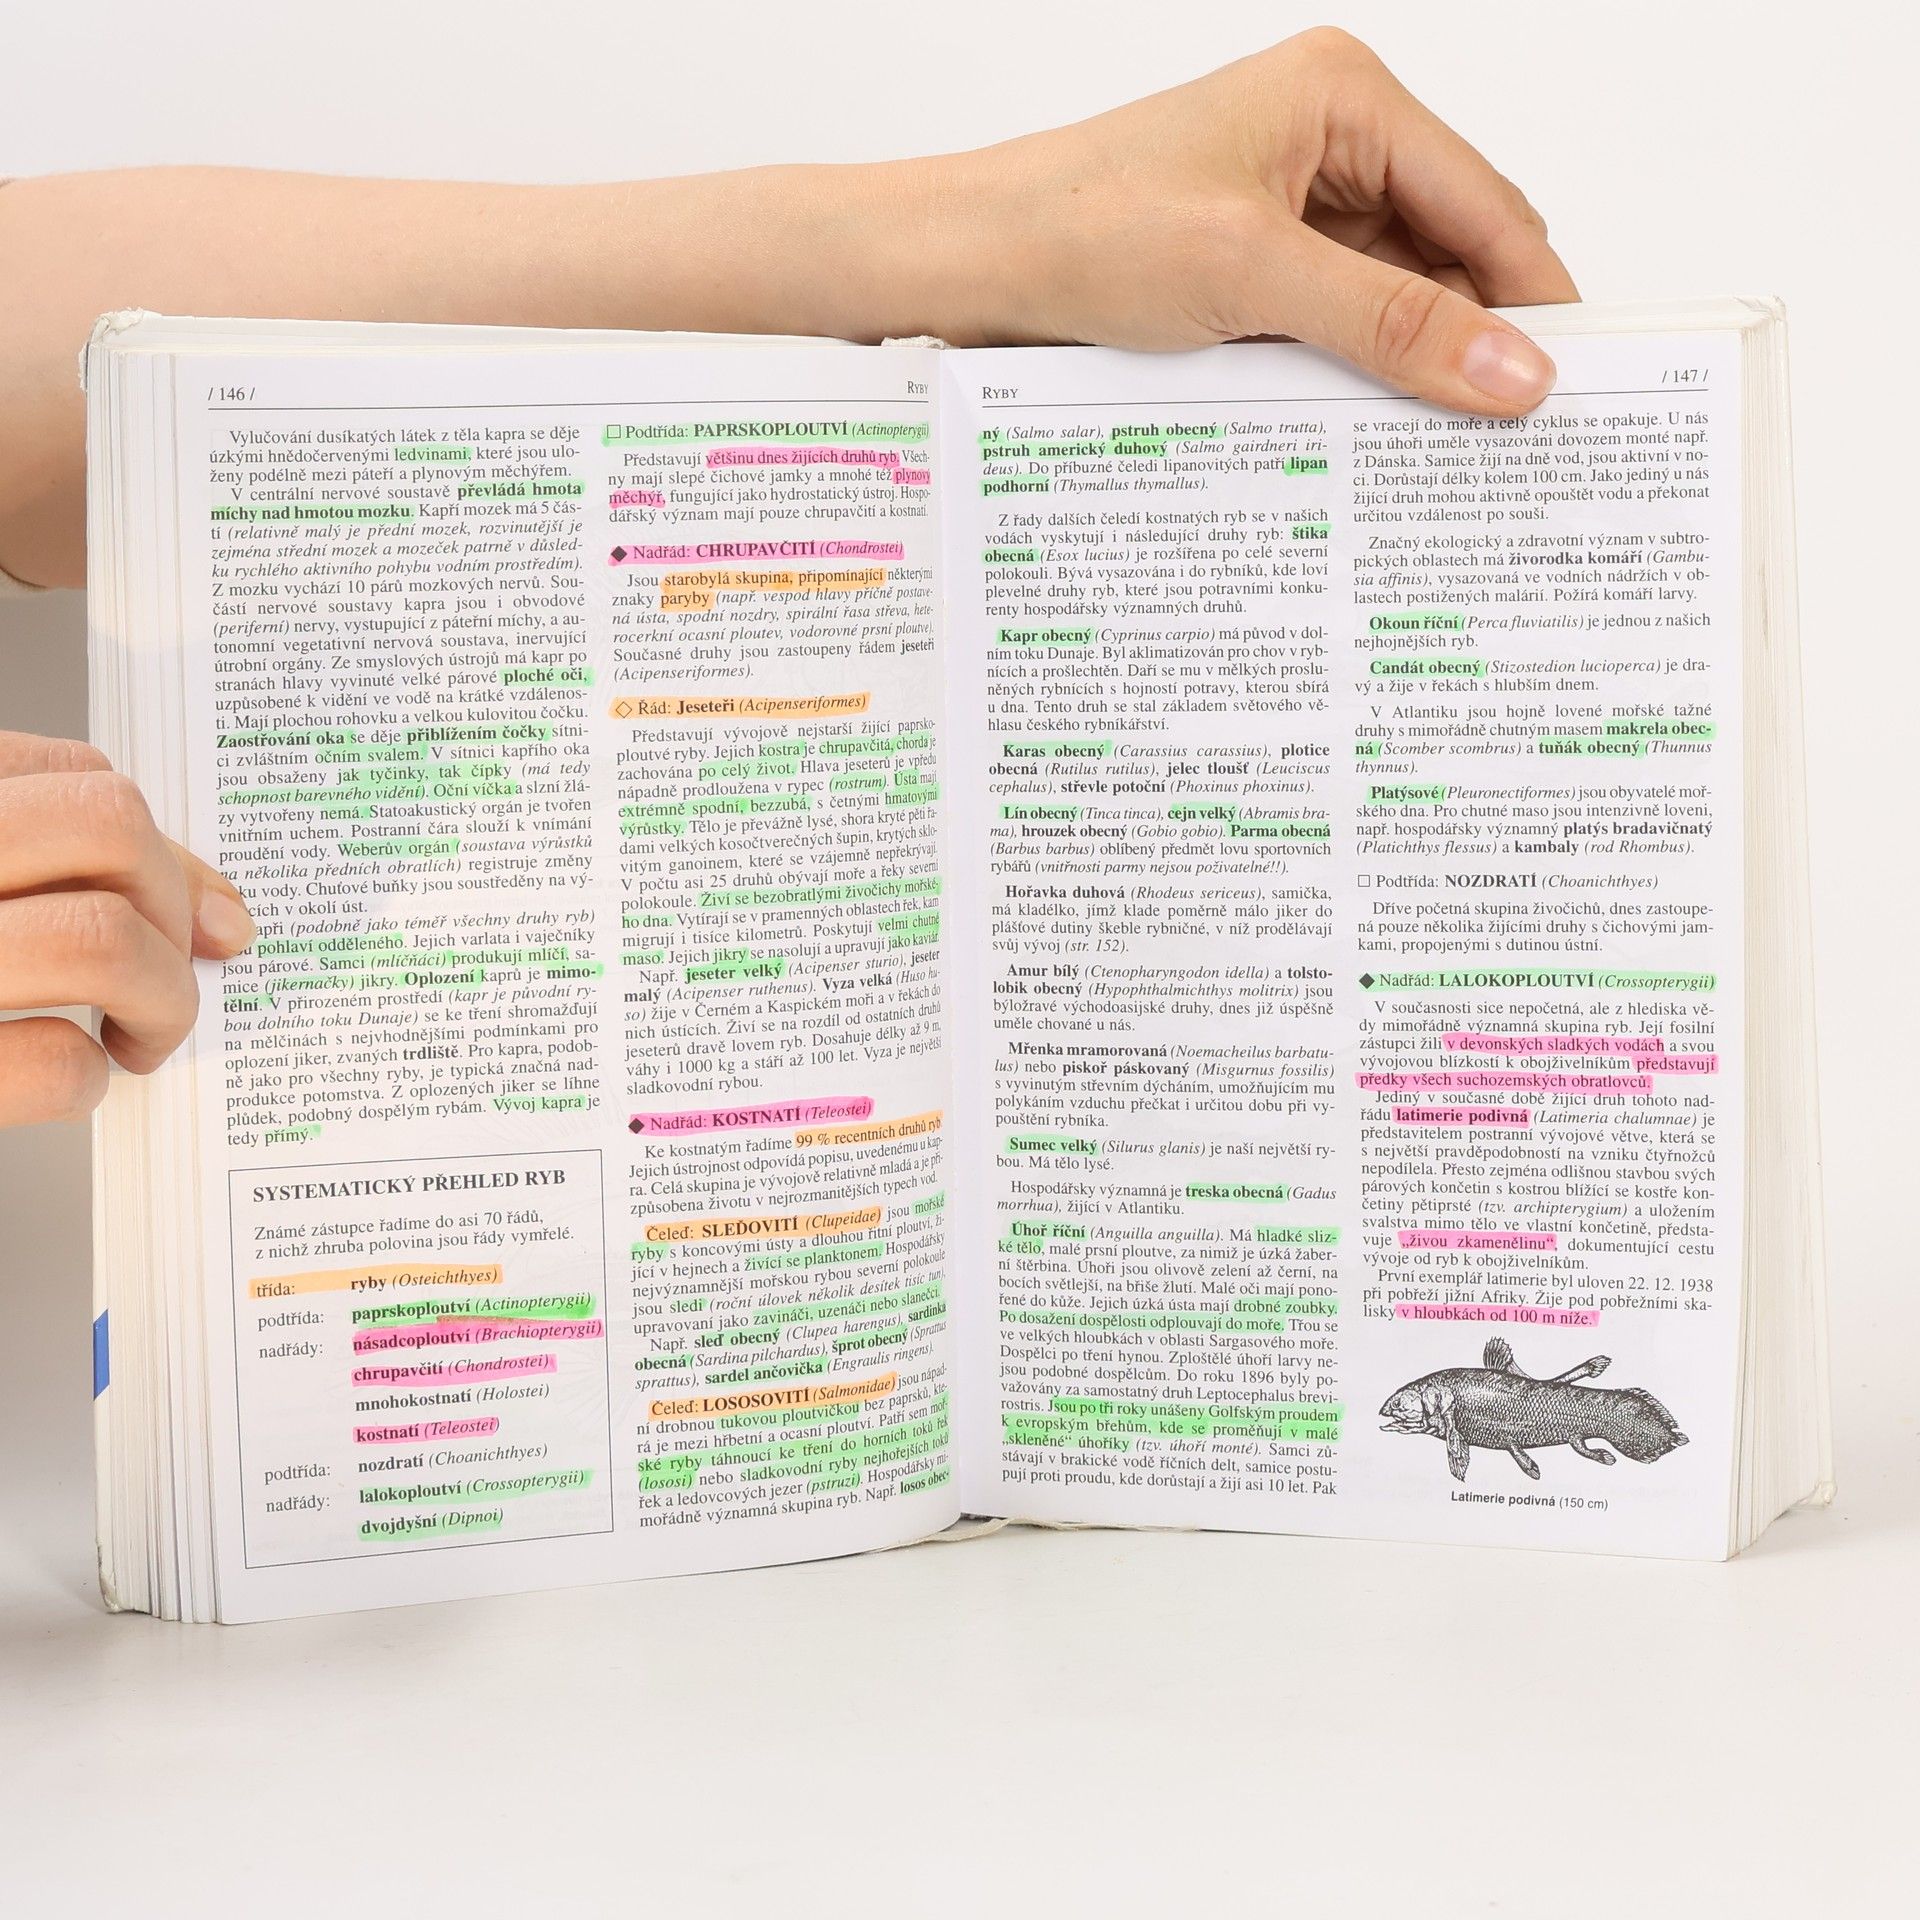 / 146 /
RYBY
Vylučování dusíkatých látek z těla kapra se děje
úzkými hnědočervenými ledvinami, které jsou ulo-
ženy podélně mezi páteří a plynovým měchýřem.
V centrální nervové soustavě převládá hmota
míchy nad hmotou mozku. Kapří mozek má 5 čás-
tí (relativně malý je přední mozek, rozvinutější je
zejména střední mozek a mozeček patrně v důsled-
ku rychlého aktivního pohybu vodním prostředím).
Z mozku vychází 10 párů mozkových nervů. Sou-
částí nervové soustavy kapra jsou i obvodové
(periferní) nervy, vystupující z páteřní míchy, a au-
tonomní vegetativní nervová soustava, inervující
útrobní orgány. Ze smyslových ústrojů má kapr po
stranách hlavy vyvinuté velké párové ploché oči,
uzpůsobené k vidění ve vodě na krátké vzdálenos-
ti. Mají plochou rohovku a velkou kulovitou čočku.
Zaostřování oka se děje přiblížením čočky sítni-
ci zvláštním očním svalem. V sítnici kapřího oka
jsou obsaženy jak tyčinky, tak čípky (má tedy
schopnost barevného vidění). Oční víčka a slzní žlá-
zy vytvořeny nemá. Statoakustický orgán je tvořen
vnitřním uchem. Postranní čára slouží k vnímání
proudění vody. Weberův orgán (soustava výrůstků
na několika předních obratlích) registruje změny
ku vody. Chuťové buňky jsou soustředěny na vý-
cích v okolí úst.
apři (podobně jako téměř všechny druhy ryb)
pohlaví odděleného. Jejich varlata i vaječníky
jsou párové. Samci (mlíčňáci) produkují mlíčí, sa-
mice (jikernačky) jikry. Oplození kaprů je mimo-
tělní. V přirozeném prostředí (kapr je původní ry-
bou dolního toku Dunaje) se ke tření shromažďují
na mělčinách s nejvhodnějšími podmínkami pro
oplození jiker, zvaných trdliště. Pro kapra, podob-
ně jako pro všechny ryby, je typická značná nad-
produkce potomstva. Z oplozených jiker se líhne
plůdek, podobný dospělým rybám. Vývoj kapra je
tedy přímý.
SYSTEMATICKÝ PŘEHLED RYB
Známé zástupce řadíme do asi 70 řádů,
z nichž zhruba polovina jsou řády vymřelé.
třída: ryby (Osteichthyes)
podtřída: paprskoploutví (Actinopterygii)
nadřády: násadcoploutví (Brachiopterygii)
chrupavčití (Chondrostei)
mnohokostnatí (Holostei)
kostnatí (Teleostei)
podtřída: nozdratí (Choanichthyes)
nadřády: lalokoploutví (Crossopterygii)
dvojdyšní (Dipnoi)
□ Podtřída: PAPRSKOPLOUTVÍ (Actinopterygii)
Představují většinu dnes žijících druhů ryb. Všech-
ny mají slepé čichové jamky a mnohé též plynový
měchýř, fungující jako hydrostatický ústroj. Hospo-
dářský význam mají pouze chrupavčití a kostnatí.
◆ Nadřád: CHRUPAVČITÍ (Chondrostei)
Jsou starobylá skupina, připomínající některými
znaky paryby (např. vespod hlavy příčně postave-
ná ústa, spodní nozdry, spirální řasa střeva, hete-
rocerkní ocasní ploutev, vodorovné prsní ploutve).
Současné druhy jsou zastoupeny řádem jeseteři
(Acipenseriformes).
◇ Řád: Jeseteři (Acipenseriformes)
Představují vývojově nejstarší žijící paprsko-
ploutvé ryby. Jejich kostra je chrupavčitá, chorda je
zachována po celý život. Hlava jeseterů je vpředu
nápadně prodloužena v rypec (rostrum). Ústa mají
extrémně spodní, bezzubá, s četnými hmatovými
výrůstky. Tělo je převážně lysé, shora kryté pěti řa-
dami velkých kosočtverečných šupin, krytých sklo-
vitým ganoinem, které se vzájemně nepřekrývají.
V počtu asi 25 druhů obývají moře a řeky severní
polokoule. Živí se bezobratlými živočichy mořské-
ho dna. Vytírají se v pramenných oblastech řek, kam
migrují i tisíce kilometrů. Poskytují velmi chutné
maso. Jejich jikry se nasolují a upravují jako kaviár.
Např. jeseter velký (Acipenser sturio), jeseter
malý (Acipenser ruthenus). Vyza velká (Huso hu-
so) žije v Černém a Kaspickém moři a v řekách do
nich ústících. Živí se na rozdíl od ostatních druhů
jeseterů dravě lovem ryb. Dosahuje délky až 9 m,
váhy i 1000 kg a stáří až 100 let. Vyza je největší
sladkovodní rybou.
◆ Nadřád: KOSTNATÍ (Teleostei)
Ke kostnatým řadíme 99 % recentních druhů ryb.
Jejich ústrojnost odpovídá popisu, uvedenému u kap-
ra. Celá skupina je vývojově relativně mladá a je při-
způsobena životu v nejrozmanitějších typech vod.
Čeleď: SLEĎOVITÍ (Clupeidae) jsou mořské
ryby s koncovými ústy a dlouhou řitní ploutví, ži-
jící v hejnech a živící se planktonem. Hospodářsky
nejvýznamnější mořskou rybou severní polokoule
jsou sledi (roční úlovek několik desítek tisíc tun),
upravovaní jako zavináči, uzenáči nebo slanečci.
Např. sleď obecný (Clupea harengus), sardinka
obecná (Sardina pilchardus), šprot obecný (Sprattus
sprattus), sardel ančovička (Engraulis ringens).
Čeleď: LOSOSOVITÍ (Salmonidae) jsou nápad-
ní drobnou tukovou ploutvičkou bez paprsků, kte-
rá je mezi hřbetní a ocasní ploutví. Patří sem moř-
ské ryby táhnoucí ke tření do horních toků řek
(lososi) nebo sladkovodní ryby nejhořejších toků
řek a ledovcových jezer (pstruzi). Hospodářsky mi-
mořádně významná skupina ryb. Např. losos obec-
RYBY
/ 147 /
ný (Salmo salar), pstruh obecný (Salmo trutta),
pstruh americký duhový (Salmo gairdneri iri-
deus). Do příbuzné čeledi lipanovitých patří lipan
podhorní (Thymallus thymallus).
Z řady dalších čeledí kostnatých ryb se v našich
vodách vyskytují i následující druhy ryb: štika
obecná (Esox lucius) je rozšířena po celé severní
polokouli. Bývá vysazována i do rybníků, kde loví
plevelné druhy ryb, které jsou potravními konku-
renty hospodářsky významných druhů.
Kapr obecný (Cyprinus carpio) má původ v dol-
ním toku Dunaje. Byl aklimatizován pro chov v ryb-
nících a prošlechtěn. Daří se mu v mělkých proslu-
něných rybnících s hojností potravy, kterou sbírá
u dna. Tento druh se stal základem světového vě-
hlasu českého rybníkářství.
Karas obecný (Carassius carassius), plotice
obecná (Rutilus rutilus), jelec tloušť (Leuciscus
cephalus), střevle potoční (Phoxinus phoxinus).
Lín obecný (Tinca tinca), cejn velký (Abramis bra-
ma), hrouzek obecný (Gobio gobio). Parma obecná
(Barbus barbus) oblíbený předmět lovu sportovních
rybářů (vnitřnosti parmy nejsou poživatelné!!).
Hořavka duhová (Rhodeus sericeus), samička,
má kladélko, jímž klade poměrně málo jiker do
plášťové dutiny škeble rybničné, v níž prodělávají
svůj vývoj (str. 152).
Amur bílý (Ctenopharyngodon idella) a tolsto-
lobik obecný (Hypophthalmichthys molitrix) jsou
býložravé východoasijské druhy, dnes již úspěšně
uměle chované u nás.
Mřenka mramorovaná (Noemacheilus barbatu-
lus) nebo piskoř páskovaný (Misgurnus fossilis)
s vyvinutým střevním dýcháním, umožňujícím mu
polykáním vzduchu přečkat i určitou dobu při vy-
pouštění rybníka.
Sumec velký (Silurus glanis) je naší největší ry-
bou. Má tělo lysé.
Hospodářsky významná je treska obecná (Gadus
morrhua), žijící v Atlantiku.
Úhoř říční (Anguilla anguilla). Má hladké sliz-
ké tělo, malé prsní ploutve, za nimiž je úzká žaber-
ní štěrbina. Úhoři jsou olivově zelení až černí, na
bocích světlejší, na břiše žlutí. Malé oči mají pono-
řené do kůže. Jejich úzká ústa mají drobné zoubky.
Po dosažení dospělosti odplouvají do moře. Třou se
ve velkých hloubkách v oblasti Sargasového moře.
Dospělci po tření hynou. Zploštělé úhoří larvy ne-
jsou podobné dospělcům. Do roku 1896 byly po-
važovány za samostatný druh Leptocephalus brevi-
rostris. Jsou po tři roky unášeny Golfským proudem
k evropským břehům, kde se proměňují v malé
„skleněné“ úhoříky (tzv. úhoří monté). Samci zů-
stávají v brakické vodě říčních delt, samice postu-
pují proti proudu, kde dorůstají a žijí asi 10 let. Pak
se vracejí do moře a celý cyklus se opakuje. U nás
jsou úhoři uměle vysazováni dovozem monté např.
z Dánska. Samice žijí na dně vod, jsou aktivní v no-
ci. Dorůstají délky kolem 100 cm. Jako jediný u nás
žijící druh mohou aktivně opouštět vodu a překonat
určitou vzdálenost po souši.
Značný ekologický a zdravotní význam v subtro-
pických oblastech má živorodka komáří (Gambu-
sia affinis), vysazovaná ve vodních nádržích v ob-
lastech postižených malárií. Požírá komáří larvy.
Okoun říční (Perca fluviatilis) je jednou z našich
nejhojnějších ryb.
Candát obecný (Stizostedion lucioperca) je dra-
vý a žije v řekách s hlubším dnem.
V Atlantiku jsou hojně lovené mořské tažné
druhy s mimořádně chutným masem makrela obec-
ná (Scomber scombrus) a tuňák obecný (Thunnus
thynnus).
Platýsové (Pleuronectiformes) jsou obyvatelé moř-
ského dna. Pro chutné maso jsou intenzivně loveni,
např. hospodářsky významný platýs bradavičnatý
(Platichthys flessus) a kambaly (rod Rhombus).
□ Podtřída: NOZDRATÍ (Choanichthyes)
Dříve početná skupina živočichů, dnes zastoupe-
ná pouze několika žijícími druhy s čichovými jam-
kami, propojenými s dutinou ústní.
◆ Nadřád: LALOKOPLOUTVÍ (Crossopterygii)
V současnosti sice nepočetná, ale z hlediska vě-
dy mimořádně významná skupina ryb. Její fosilní
zástupci žili v devonských sladkých vodách a svou
vývojovou blízkostí k obojživelníkům představují
předky všech suchozemských obratlovců.
Jediný v současné době žijící druh tohoto nad-
řádu latimerie podivná (Latimeria chalumnae) je
představitelem postranní vývojové větve, která se
s největší pravděpodobností na vzniku čtyřnožců
nepodílela. Přesto zejména odlišnou stavbou svých
párových končetin s kostrou blížící se kostře kon-
četiny pětiprsté (tzv. archipterygium) a uložením
svalstva mimo tělo ve vlastní končetině, předsta-
vuje „živou zkamenělinu“, dokumentující cestu
vývoje od ryb k obojživelníkům.
První exemplář latimerie byl uloven 22. 12. 1938
při pobřeží jižní Afriky. Žije pod pobřežními ska-
lisky v hloubkách od 100 m níže.
Latimerie podivná (150 cm)